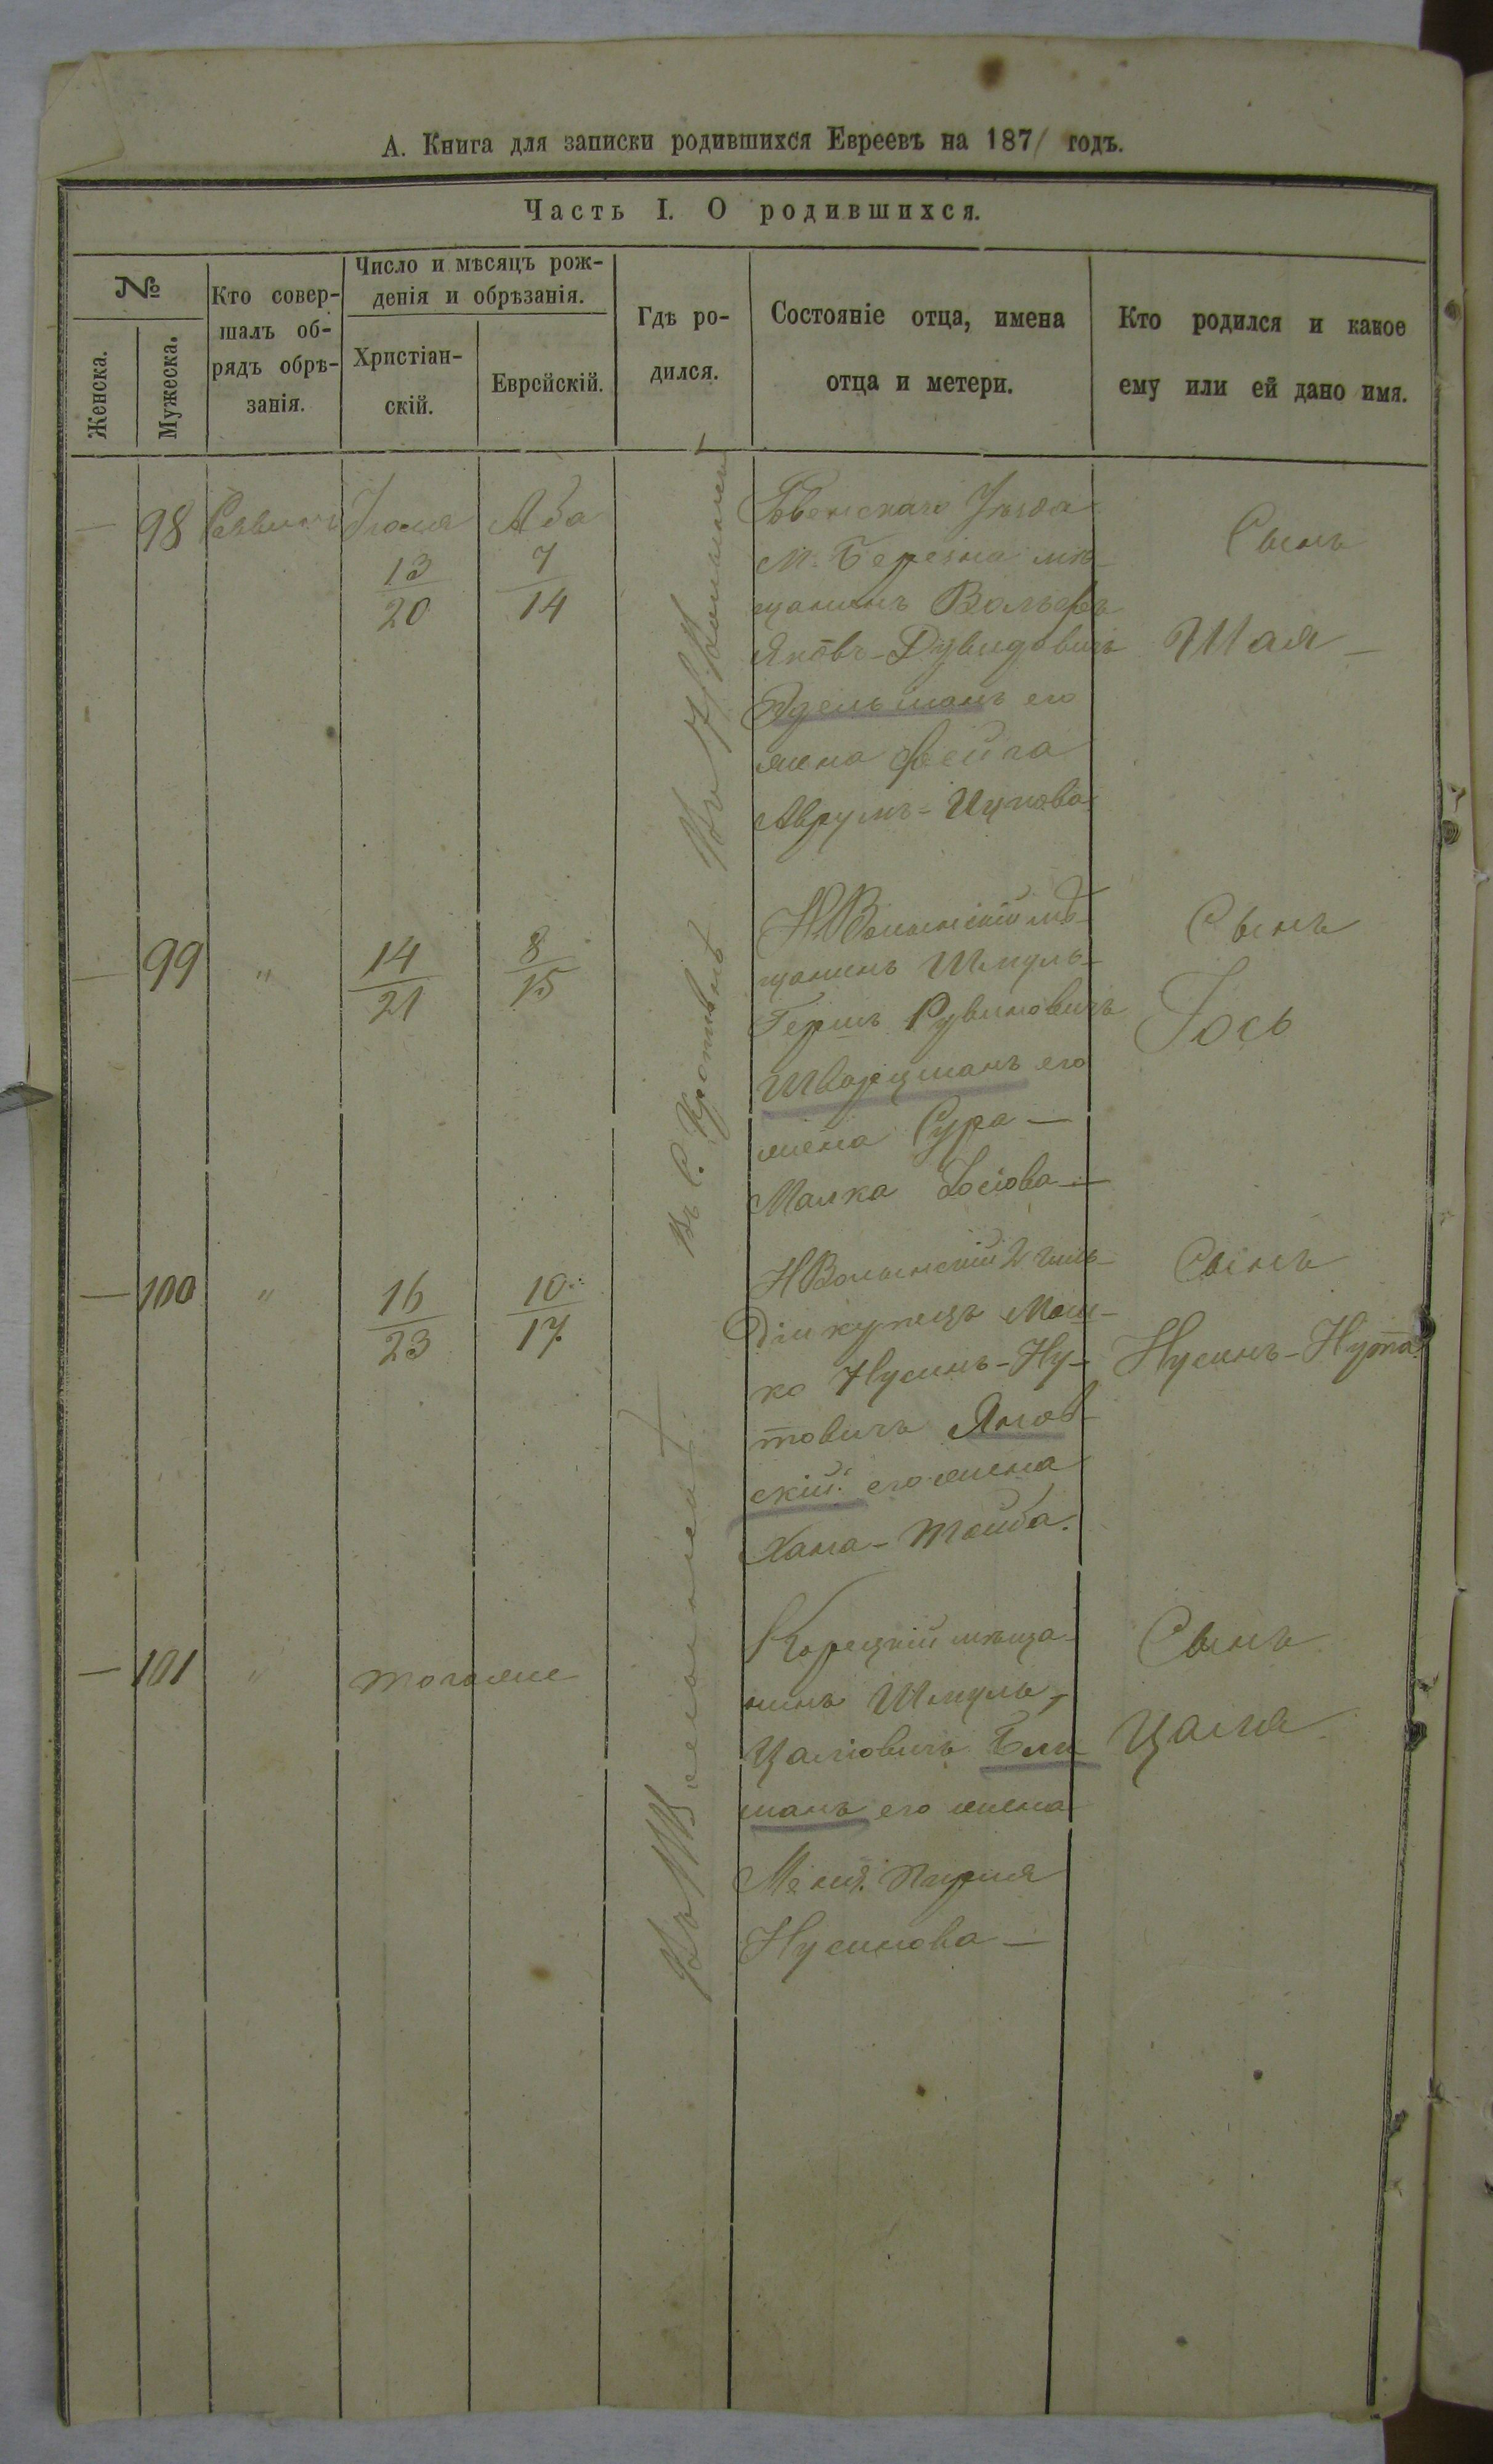 А. Книга для записки родившихся Евреевъ на 1871 годъ.
Часть I. О родившихся.
№
Женска.
Мужеска.
Кто совер-
шалъ об-
рядъ обрѣ-
занія.
Число и мѣсяцъ рож-
денія и обрѣзанія.
Христіан-
скій.
Еврейскій.
Гдѣ ро-
дился.
Состояніе отца, имена
отца и метери.
Кто родился и какое
ему или ей дано имя.
— 98
Іюля
13
20
Аба
7
14
уѣзда
м. Березна мѣ-
щанинъ Вольфъ
Яковъ-Дувидовичъ
его
жена Фейга
Аврумъ-Ицкова
Сынъ
Шая —
— 99 "
14
21
8
15
Въ С.
НВолынскій мѣ-
щанинъ Шмуль-
Гершъ Рувиновичъ
Шварцманъ его
жена Сура —
Малка Іосіова —
Сынъ
Іось
— 100 "
16
23
10
17.
НВолынскій 2 гиль-
діи купецъ Мош-
ко Нусинъ-Ну-
товичъ
скій его жена
Хана-Тойба.
Сынъ
Нусинъ-Нута
— 101 "
тогоже
Корецкій мѣща-
нинъ Шмуль-
Цаліовичъ
манъ его жена
Нусинова —
Сынъ
Цаля